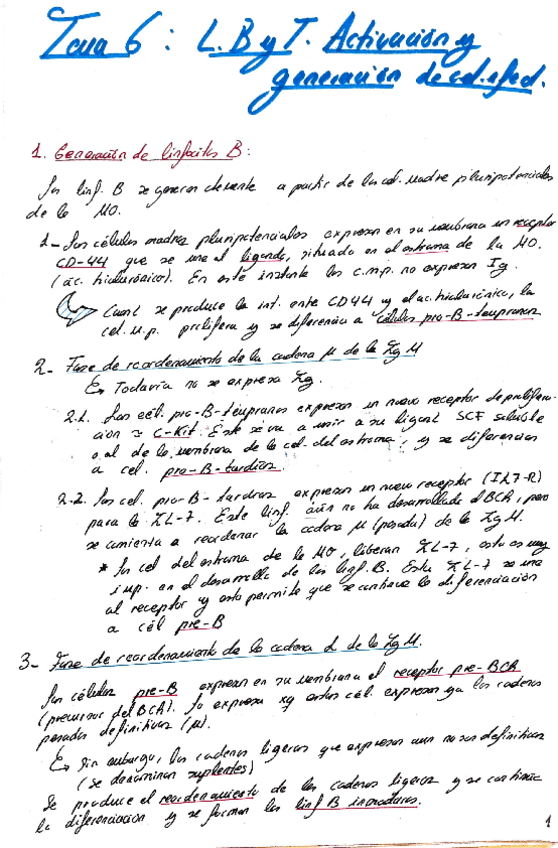 Tema 6: L. B y T. Activación y
generación de cel. efect.
1. Generación de linfocitos B:
Los linf. B se generan a partir de las cel. madre pluripotenciales
de la MO.
1- Las células madres pluripotenciales expresan en su membrana un receptor
CD-44 que se une al ligando, situado en el estroma de la MO.
(ac. hialurónico). En este instante las c.m.p. no expresan Ig.
Cuand se produce la int. entre CD44 y el ac. hialurónico, la
cel. m.p. prolifera y se diferencia a células pro-B-tempranas
2- Fase de reordenamiento de la cadena μ de la Ig M
↳ Todavía no se expresa Ig.
2.1. Las cél. pro-B-tempranas expresan un nuevo receptor de prolifera-
ción C-Kit. Este se va a unir a su ligand SCF soluble
o al de la membrana de la cel. del estroma, y se diferencian
a cel. pro-B-tardías.
2.2. Las cel. pro-B-tardías expresan un nuevo receptor (IL7-R)
para la IL-7. Este linf. aún no ha desarrollado el BCR, pero
se comienza a reordenar la cadena μ (pesada) de la Ig M.
* Las cel del estroma de la MO, liberan IL-7, esto es muy
imp. en el desarrollo de los linf. B. Esta IL-7 se une
al receptor y esto permite que se continúe la diferenciación
a cél pre-B
3- Fase de reordenamiento de la cadena L de la Ig M.
Las células pre-B expresan en su membrana el receptor pre-BCR
(precursor del BCR). Lo expresa xq estas cél. expresan ya las cadenas
pesadas definitivas (μ).
↳ Sin embargo, las cadenas ligeras que expresan aun no son definitivas
(se denominan suplentes)
Se produce el reordenamiento de las cadenas ligeras y se continúa
la diferenciación y se forman los linf B inmaduros.
1